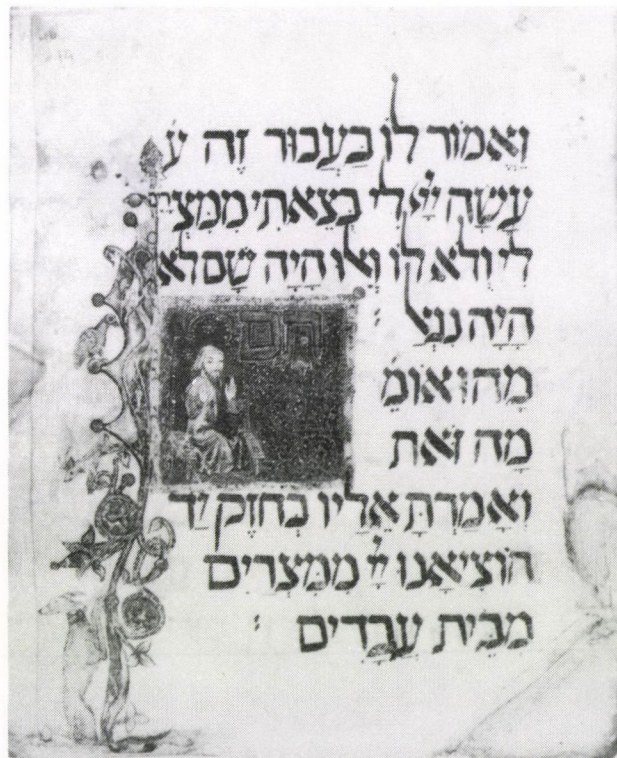 וֶאֱמוֹר לוֹ בַּעֲבוּר זֶה ע
עָשָׂה יְיָ לִי בְּצֵאתִי מִמִּצְרַיִם
לִי וְלֹא לוֹ וְאִלּוּ הָיָה שָׁם לֹא
הָיָה נִגְאָל :
תם
מַהוּ אוֹמֵ
מַה זֹּאת
וְאָמַרְתָּ אֵלָיו בְּחֹזֶק יָד
הוֹצִיאָנוּ יְיָ מִמִּצְרַיִם
מִבֵּית עֲבָדִים :